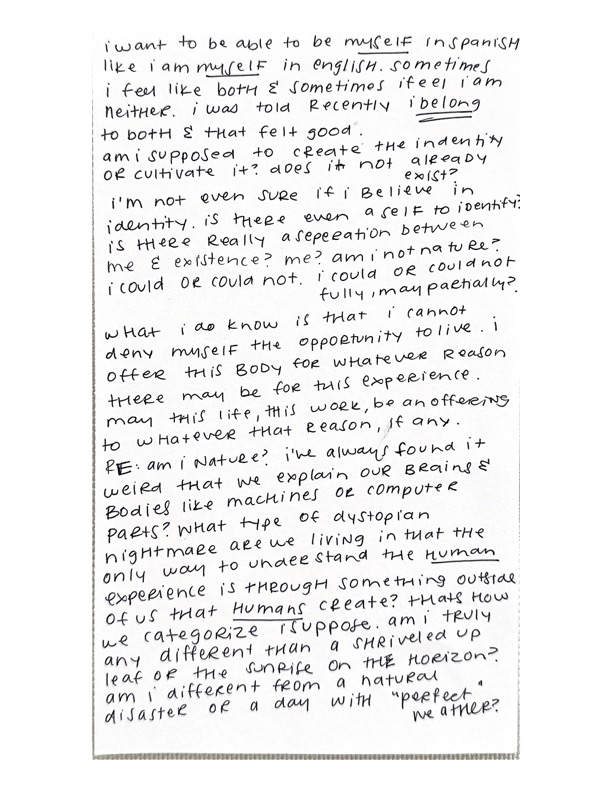 i want to be able to be myself in spanish
like i am myself in english. sometimes
i feel like both & sometimes i feel i am
neither. i was told recently i belong
to both & that felt good.
am i supposed to create the indentity
or cultivate it? does it not already
exist?
i'm not even sure if i believe in
identity. is there even a self to identify?
is there really a seperation between
me & existence? me? am i not nature?
i could or could not. i could or could not
fully, may partially?
what i do know is that i cannot
deny myself the opportunity to live. i
offer this body for whatever reason
there may be for this experience.
may this life, this work, be an offering
to whatever that reason, if any.
RE: am i nature? i've always found it
weird that we explain our brains &
bodies like machines or computer
parts? what type of dystopian
nightmare are we living in that the
only way to understand the human
experience is through something outside
of us that humans create? thats how
we categorize i suppose. am i truly
any different than a shriveled up
leaf or the sunrise on the horizon?
am i different from a natural
disaster or a day with "perfect"
weather?